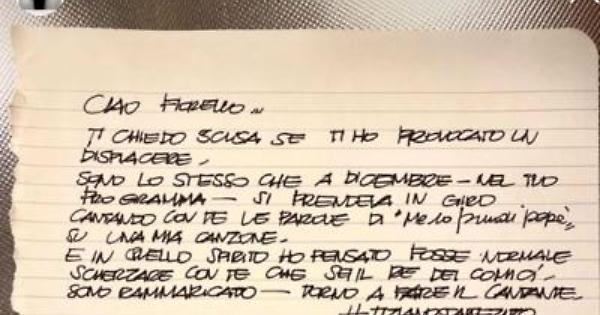 CIAO FIORELLO...
TI CHIEDO SCUSA SE TI HO PROVOCATO UN
DISPIACERE.
SONO LO STESSO CHE A DICEMBRE - NEL TUO
PROGRAMMA - SI PRENDEVA IN GIRO
CANTANDO CON TE LE PAROLE DI "Me lo prendi papè"
SU UNA MIA CANZONE.
E IN QUELLO SPIRITO HO PENSATO FOSSE NORMALE
SCHERZARE CON TE CHE SEI IL RE DEI COMICI.
SONO RAMMARICATO - TORNO A FARE IL CANTANTE.